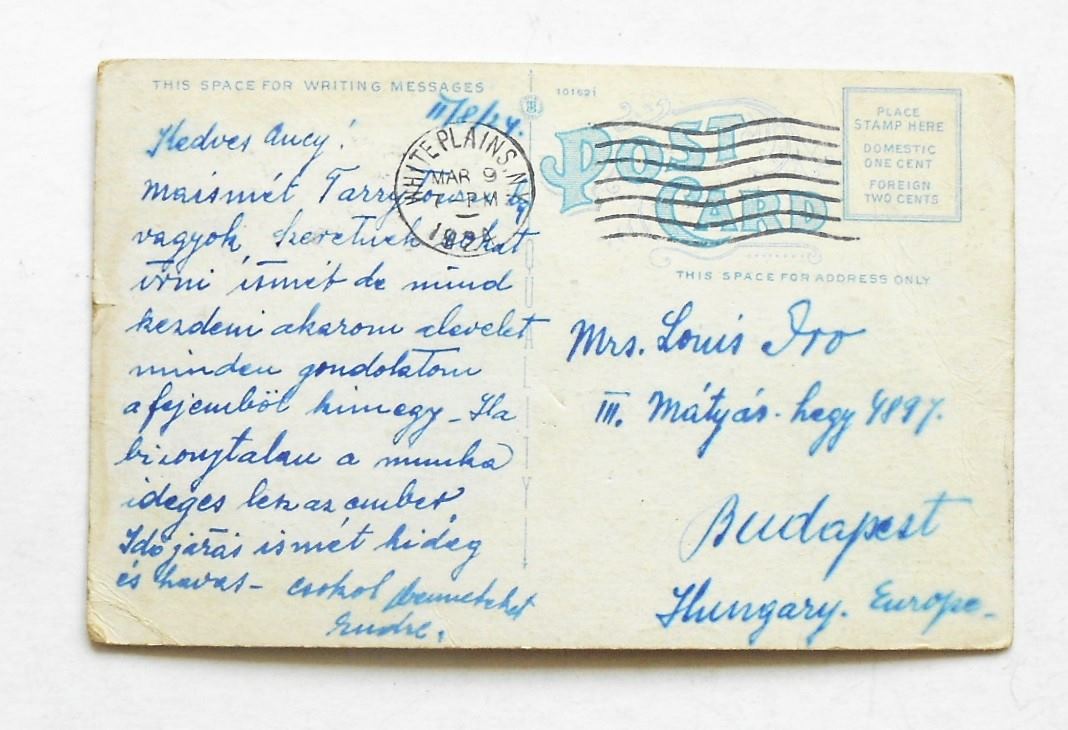 THIS SPACE FOR WRITING MESSAGES
III/8/24.
Kedves Ancy!
maismét Tarrytown
vagyok, szeretnék sokat
írni ismét de mind
kezdeni akarom alevelet
minden gondolatom
a fejemből kimegy - Ha
bizonytalan a munka
ideges lesz az ember.
Időjárás ismét hideg
és havas - csokol benneteket
Endre.
WHITE PLAINS, N.Y.
MAR 9
7 - PM
QUALITY
101621
POST
CARD
PLACE
STAMP HERE
DOMESTIC
ONE CENT
FOREIGN
TWO CENTS
THIS SPACE FOR ADDRESS ONLY
Mrs. Louis Iro
III. Mátyás-hegy 4897.
Budapest
Hungary. Europe-